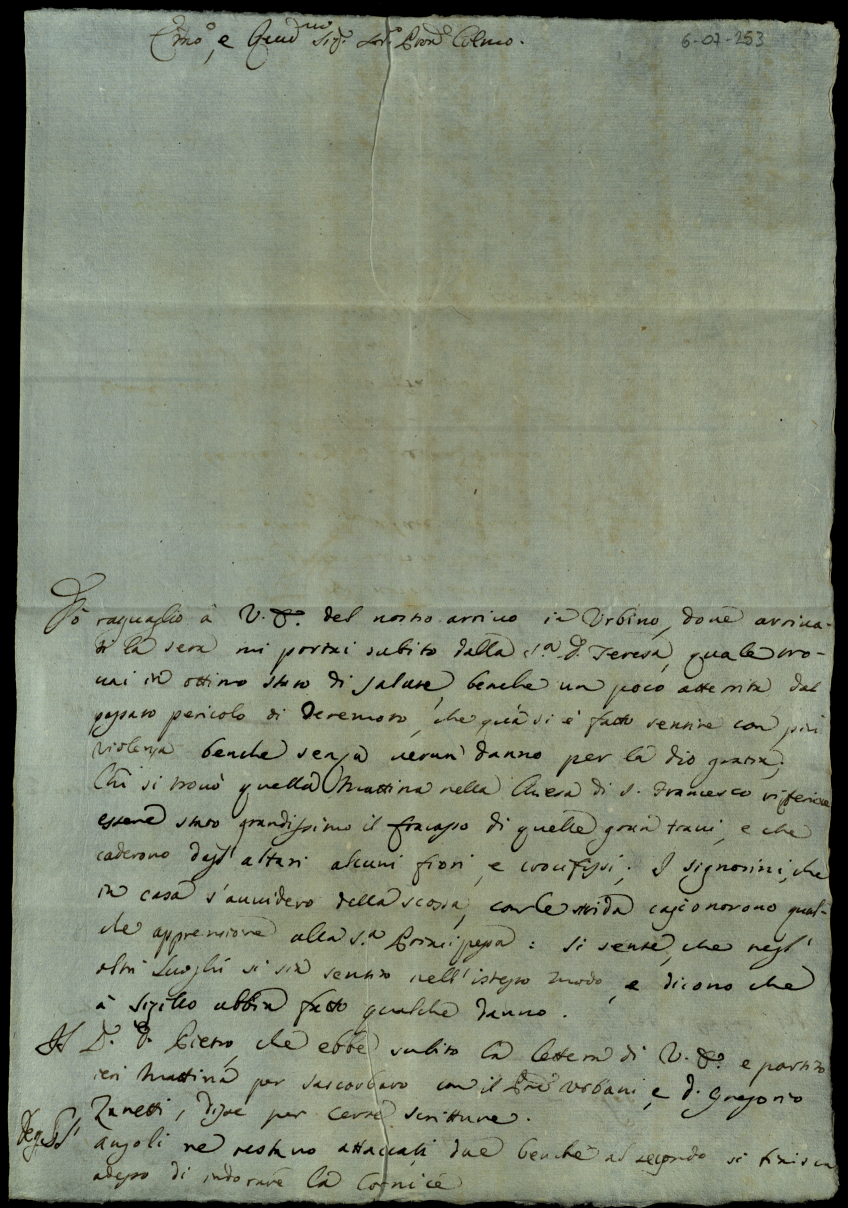 Em̃o, e Reṽmo Sig. Sig. Pron̄ Colmo.
6-07-253
Dò raguaglio à V. E. del nostro arriuo in Vrbino, doue arriua-
ti la sera mi portai subito dalla S.ra D. Teresa, quale tro-
uai in ottimo stato di salute, benche un poco atterrita dal
passato pericolo di Teremoto, che quà si è fatto sentire con più
violenza benche senza uerun danno per la dio grazia;
Chi si trouò quella Mattina nella Chiesa di S. Francesco riferisce
essere stato grandissimo il fracasso di quelle gran traui, e che
caderono dagl'altari alcuni fiori, e crocifissi. I signorini, che
in casa s'auuidero della scossa, con le strida cagionorono qual-
che apprensione alla S.ra Principessa: si sente, che negl'
altri luoghi si sia sentito nell'istesso modo, e dicono che
à Sigillo abbia fatto qualche danno.
Il D. Pietro, che ebbe subito la lettera di V. E. è partito
ieri Mattina per Sascorbaro con il Vrbani, e D. Gregorio
Zanetti, disse per certe scritture.
Degl'
angoli ne restano attaccati due benche al secondo si finisca
adesso di indorare la Cornice